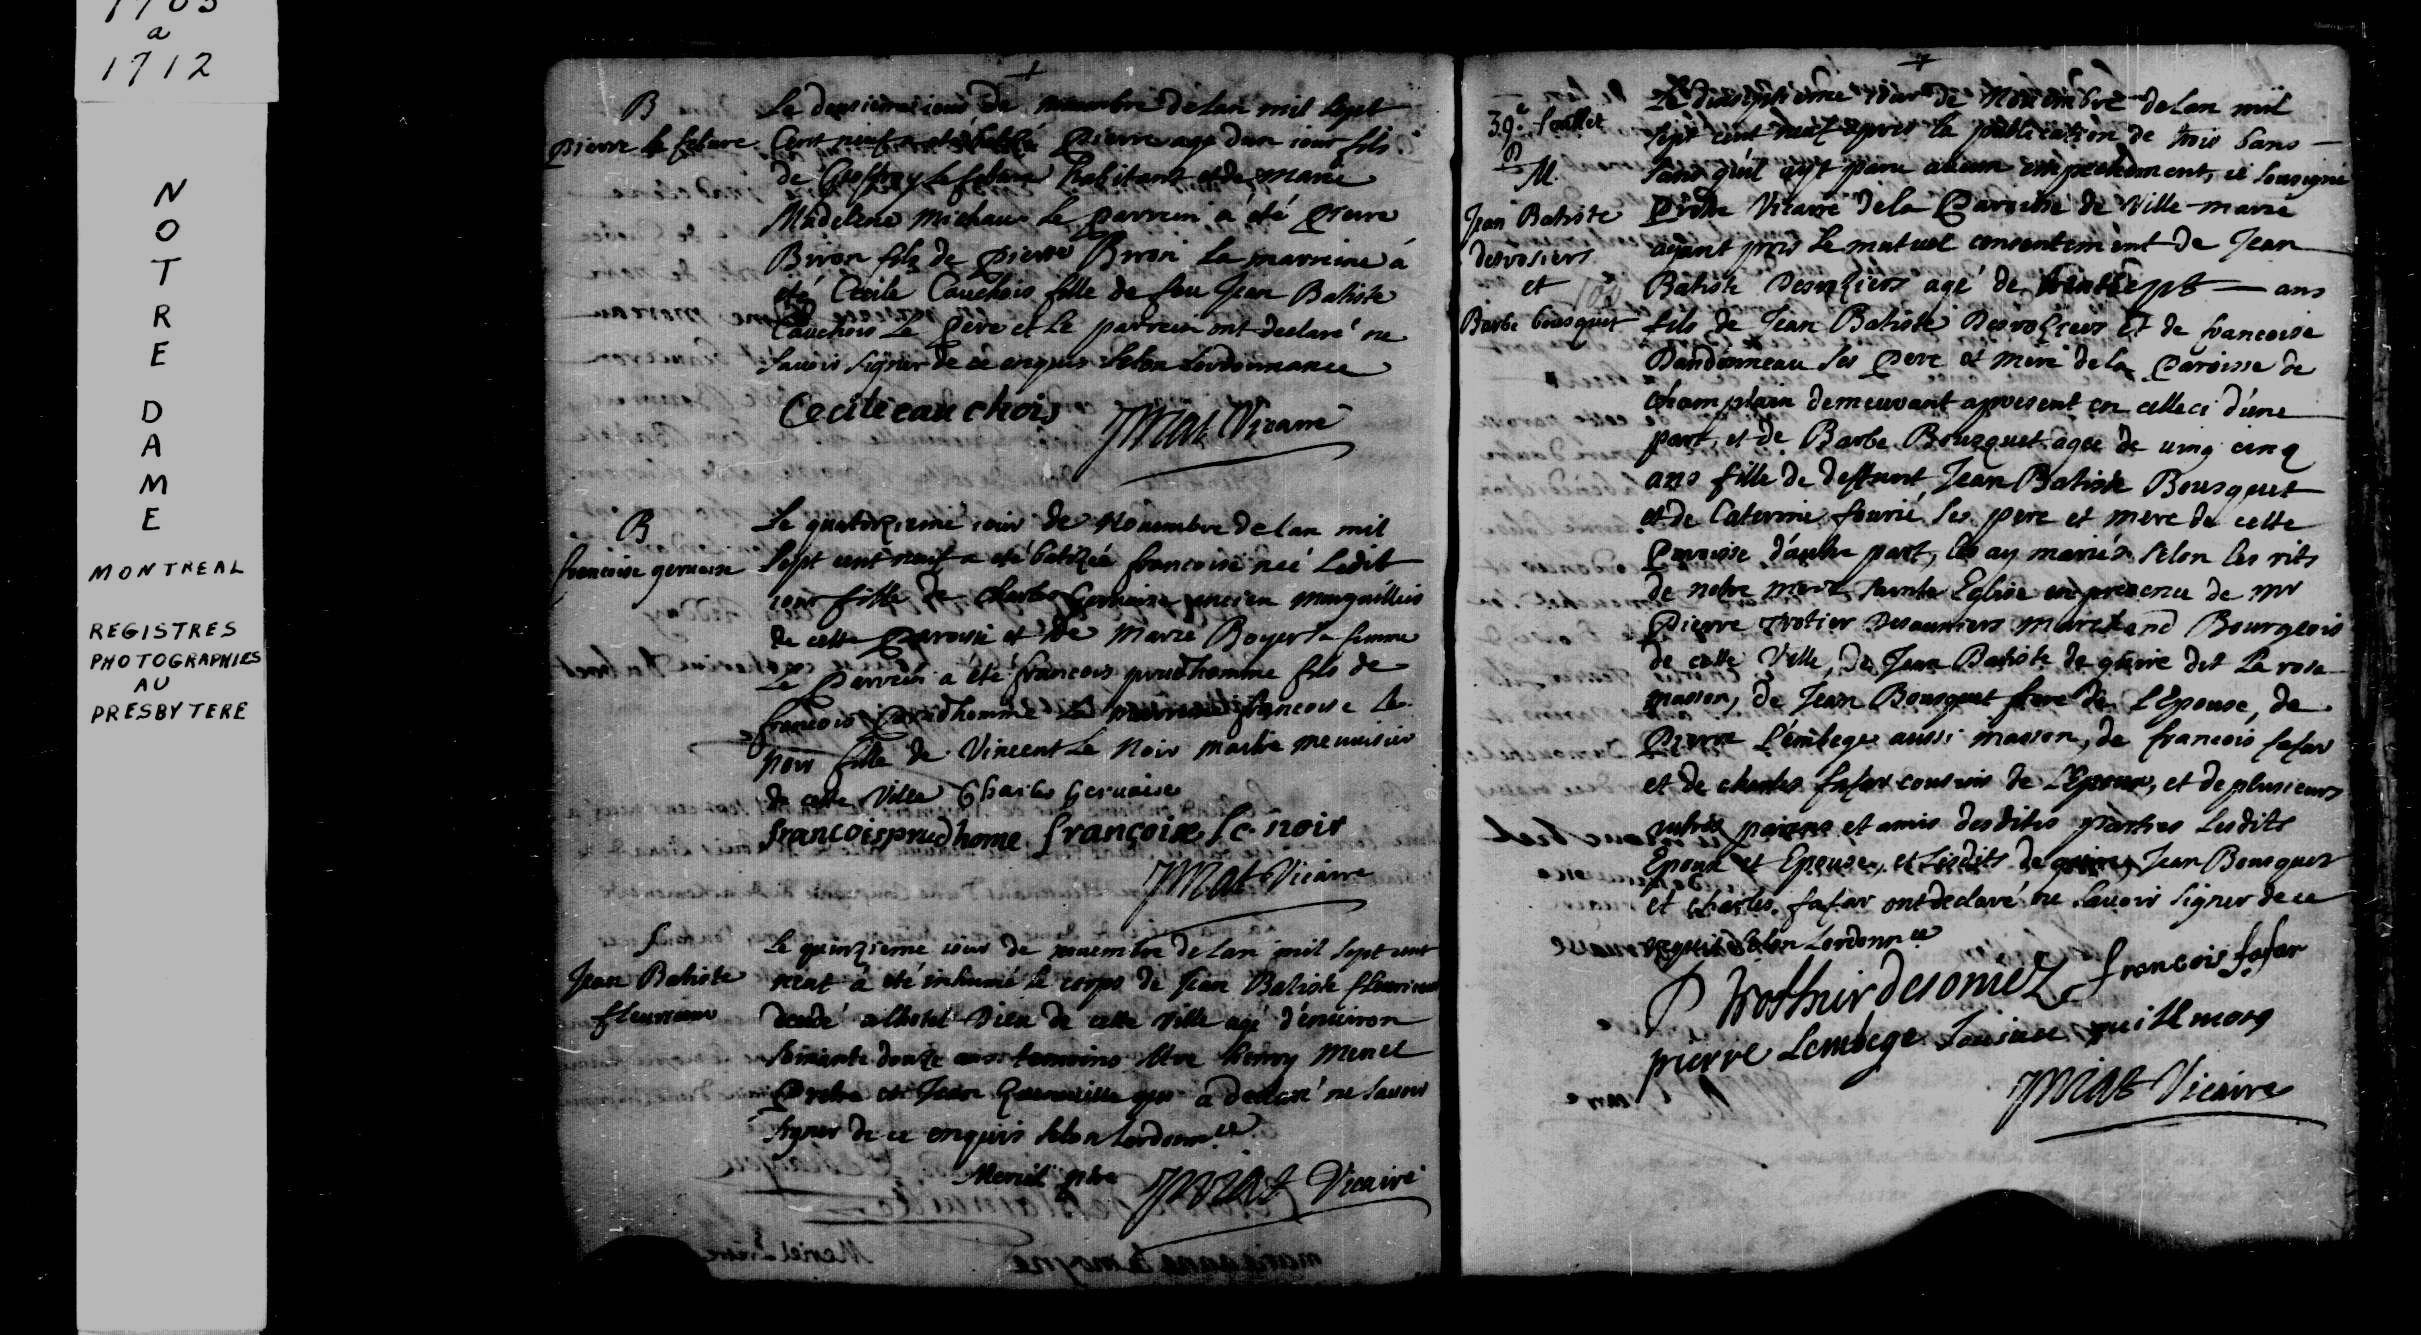 1705
a
1712
NOTRE
DAME
MONTREAL
REGISTRES
PHOTOGRAPHIES
AU
PRESBYTERE
B
pierre le febure
Le jour de nouembre de lan mil Sept
Cent neuf a eté batizé Pierre agé dun iour fils
de Geoffroy Le febure habitant et de marie
Madeleine michau Le parrein a été pierre
Biron fils de pierre Biron La marreine a
eté Cecile Cauchois fille de feu Jean Batiste
Cauchois Le Pere et Le parrein ont declaré ne
Sauoir Signer de ce enquis Selon Lordonnance
Cecile cauchois
Priat Vicaire
B
françoise geruaise
Le quatorzieme iour de Nouembre de lan mil
Sept cent neuf a eté batizée francoise neé Ledit
iour fille de charles Geruaise ancien marguillier
de cette Paroisse et de Marie Boyer Sa femme
Le Parrein a été francois prudhomme fils de
francois Prudhomme La marreine francoise Le
noir fille de Vincent Le Noir maitre menuisier
de cette Ville Charles Geruaise
francois prudhome françoise le noir
Priat Vicaire
S
Jean Batiste
fleuricour
Le quinzieme iour de nouembre de Lan mil Sept cent
neuf a été inhumé le corps de Jean Batiste fleuricour
decedé a lhotel Dieu de cette Ville agé d'enuiron
Soixante douze ans temoins Mre henry Meriel
Pretre et Jean Quenneuille qui a declaré ne Sauoir
Signer de ce enquis Selon Lordonnce
Meriel ptre Priat Vicaire
39e feuillet
M
Jean Batiste
desrosiers
et
Barbe bousquet
Le dixseptieme iour de Nouembre de lan mil
Sept cent neuf apres la publication de trois bans
Sans qu'il ayt paru aucun empechement, ie Sousigné
Pretre Vicaire de la Paroisse de Ville-marie
ayant pris Le mutuel consentement de Jean
Batiste Desroziers agé de trente Sept ans
fils de Jean Batiste Desroziers et de francoise
Dandonneau Ses Pere et mere de la Paroisse de
Champlain demeurant apresent en celle ci d'une
part, et de Barbe Bouzquet agée de uingt cinq
ans fille de deffunt Jean Batiste Bousquet
et de Caterine fourié Ses pere et mere de cette
Paroisse d'autre part, les ay mariés Selon les rits
de notre mere Sainte Eglise en presence de mr
Pierre Trotier Desauniers marchand Bourgeois
de cette Ville, de Jean Batiste de guire dit La rose
masson, de Jean Bousquet frere de L'Epouse, de
Pierre L'embege aussi masson, de francois fafar
et de charles fafar cousins de L'Epoux, et de plusieurs
autres parens et amis desdites parties Lesdits
Epoux et Epouse, et Lesdits de guire, Jean Bousquet
et charles fafar ont declaré ne Sauoir Signer de ce
enquis Selon Lordonnce
P Trottier desoniez francois fafar
pierre Lembege
Priat Vicaire